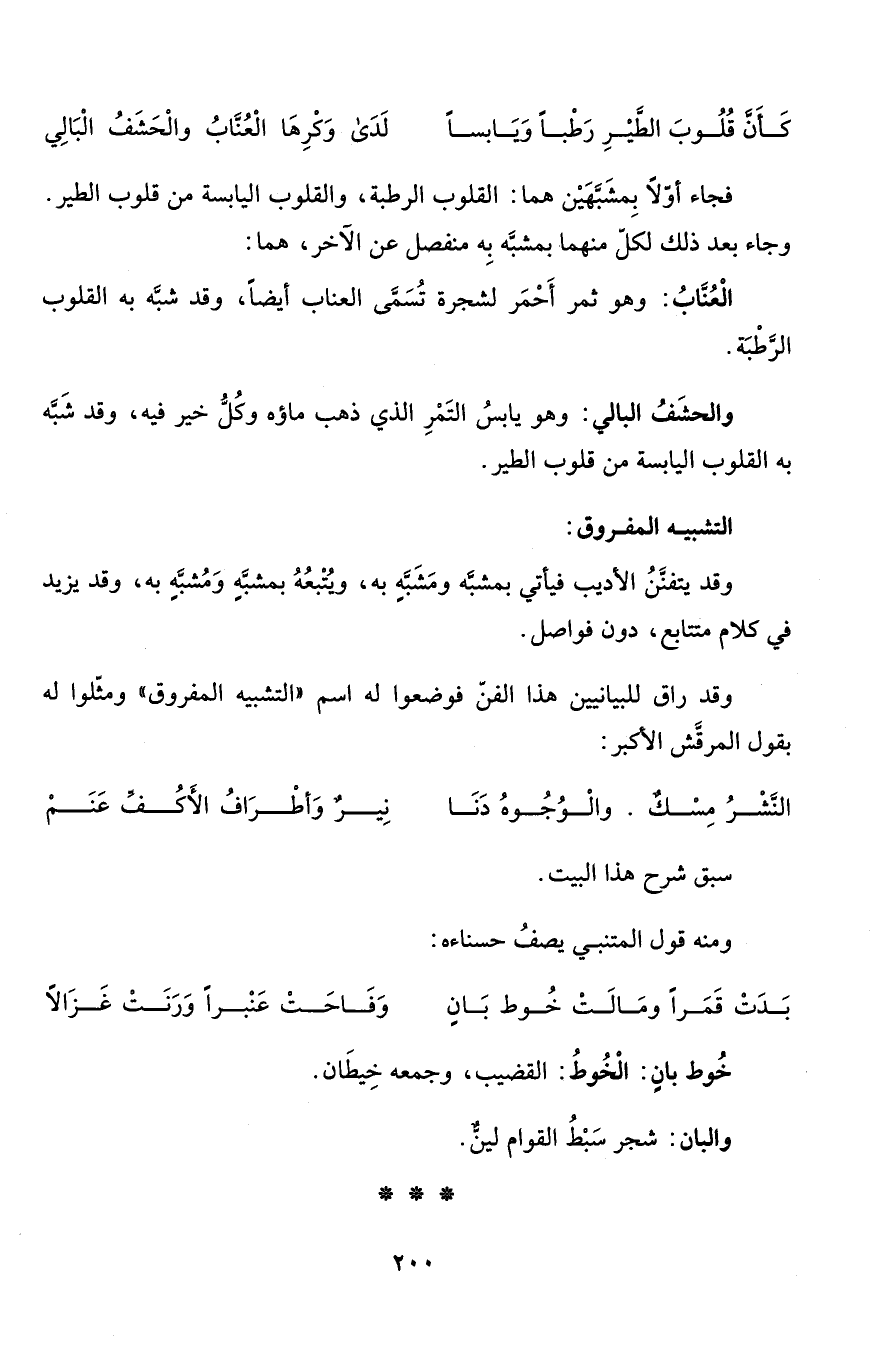 كَأَنَّ قُلُوبَ الطَّيْرِ رَطْباً وَيَابساً لَدَىٰ وَكْرِهَا الْعُنَّابُ والْحَشَفُ الْبَالِي
فجاء أوّلاً بِمشَبَّهَيْن هما: القلوب الرطبة، والقلوب اليابسة من قلوب الطير.
وجاء بعد ذلك لكلّ منهما بمشبَّه بِه منفصل عن الآخر، هما:
الْعُنَّابُ: وهو ثمر أَحْمَر لشجرة تُسَمَّى العناب أيضاً، وقد شبَّه به القلوب
الرَّطْبَة.
والحشَفُ البالي: وهو يابسُ التَمْرِ الذي ذهب ماؤه وكُلُّ خير فيه، وقد شَبَّه
به القلوب اليابسة من قلوب الطير.
التشبيه المفروق:
وقد يتفنَّنُ الأديب فيأتي بمشبَّه ومَشَبَّهٍ به، ويُتْبعُهُ بمشبَّهٍ وَمُشبَّهٍ به، وقد يزيد
في كلام متتابع، دون فواصل.
وقد راق للبيانيين هذا الفنّ فوضعوا له اسم «التشبيه المفروق» ومثّلوا له
بقول المرقَّش الأكبر:
النَّشْرُ مِسْكٌ . والْوُجُوهُ دَنَا نِيرٌ وَأطْرَافُ الأَكُفِّ عَنَمْ
سبق شرح هذا البيت.
ومنه قول المتنبي يصفُ حسناءه:
بَدَتْ قَمَراً ومَالَتْ خُوط بَانٍ وَفَاحَتْ عَنْبراً وَرَنَتْ غَزَالاً
خُوط بانٍ: الْخُوطُ: القضيب، وجمعه خِيطَان.
والبانُ: شجر سَبْطُ القوام لينٌّ.
* * *
٢٠٠